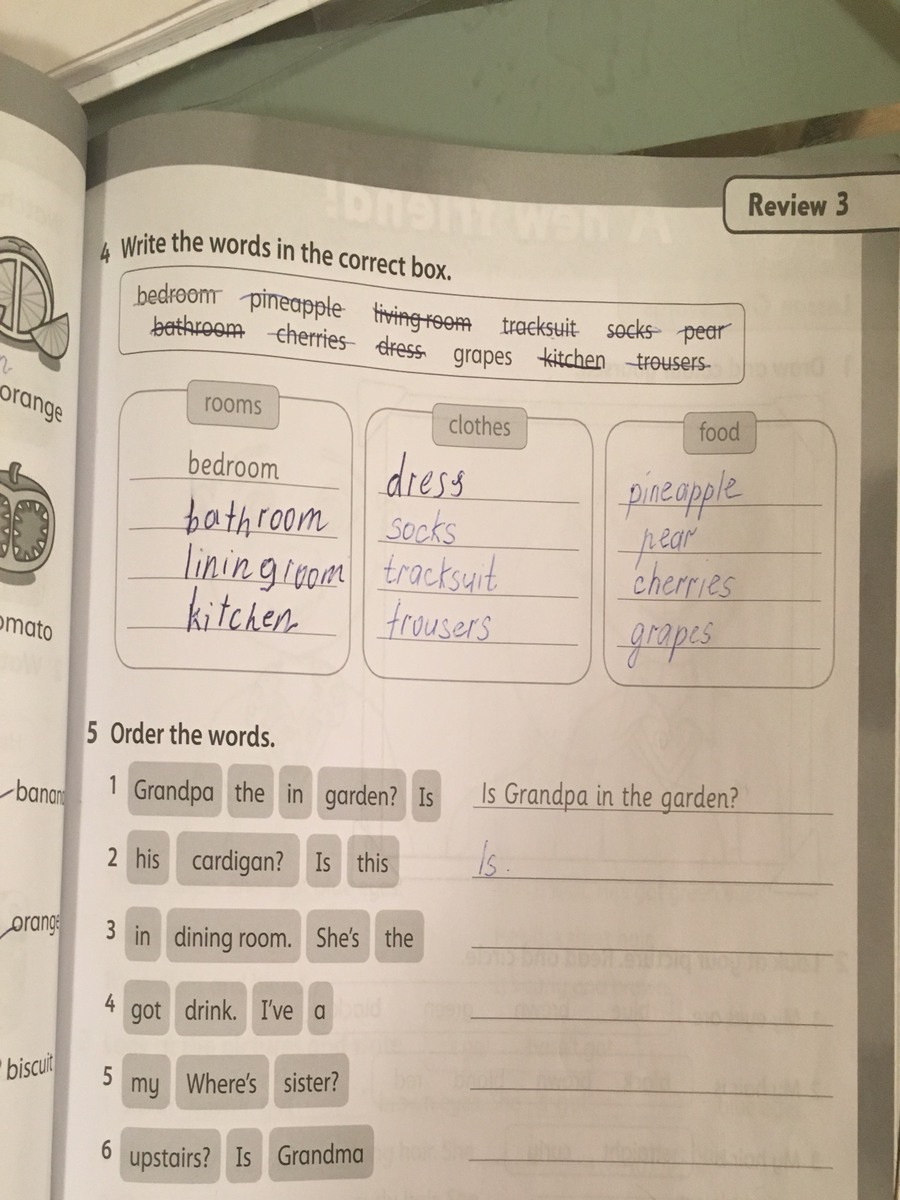 Review 3
4 Write the words in the correct box.
bedroom pineapple living room tracksuit socks pear
bathroom cherries dress grapes kitchen trousers.
rooms clothes food
bedroom dress pineapple
bathroom socks pear
lining room tracksuit cherries
kitchen trousers grapes
5 Order the words.
1 Grandpa the in garden? Is Is Grandpa in the garden?
2 his cardigan? Is this Is.
3 in dining room. She's the
4 got drink. I've a
5 my Where's sister?
6 upstairs? Is Grandma
orange
biscuit